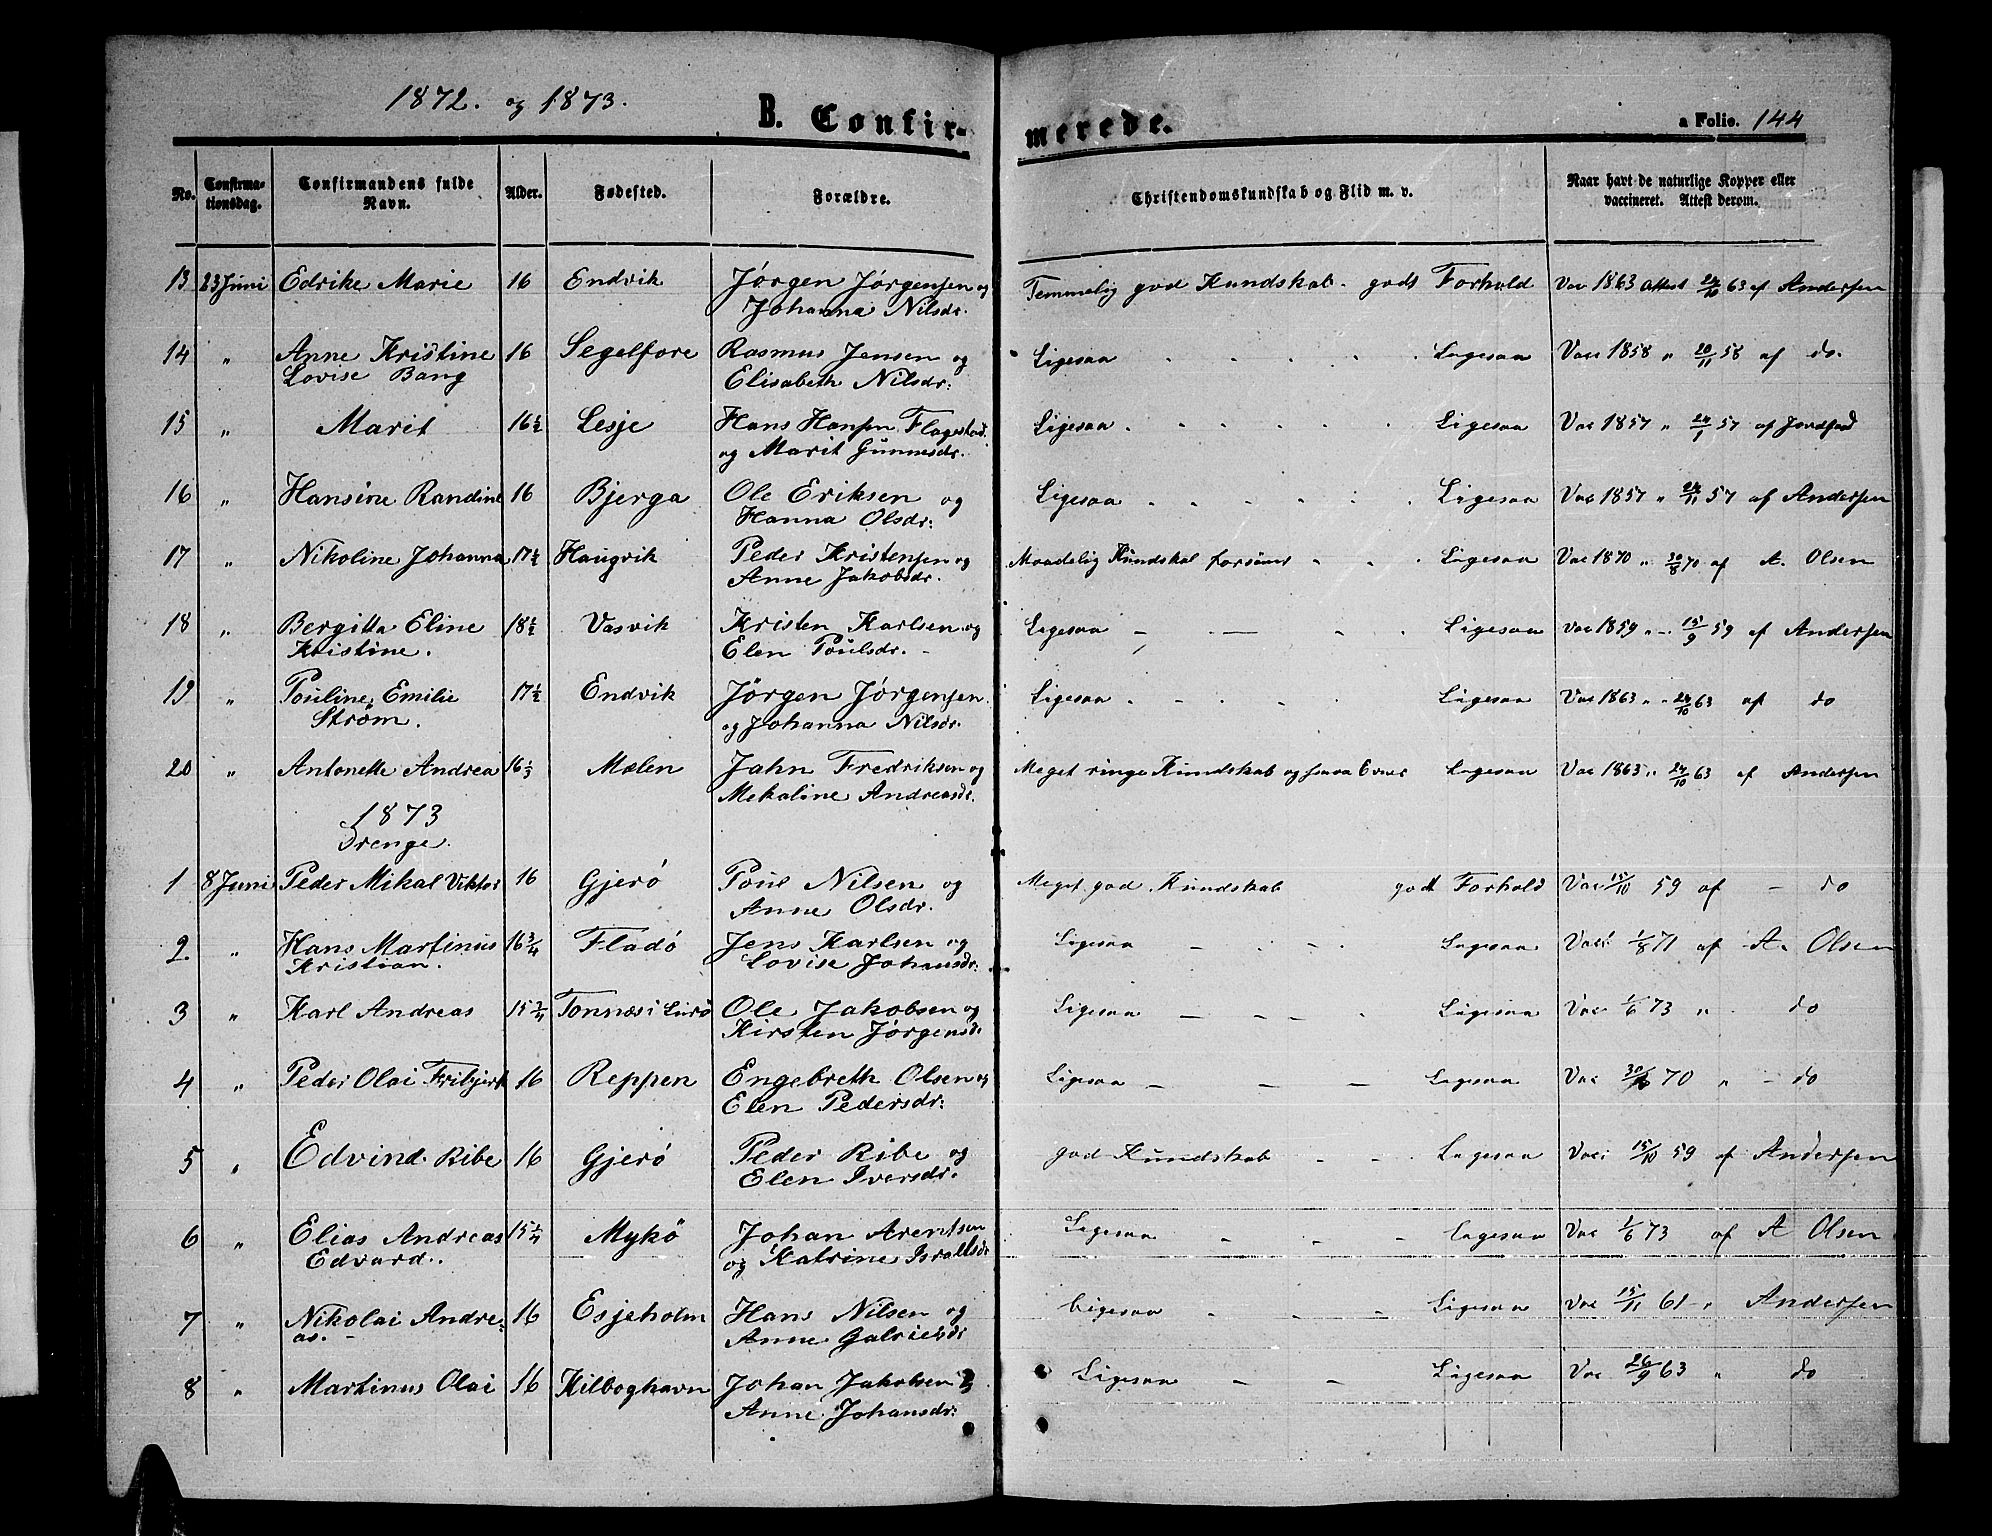 1872. og 1873.
B. Confirmerede.
a Folio. 144
No. | Confirmationsdag. | Confirmandens fulde Navn. | Alder. | Fødested. | Forældre. | Christendomskundskab og Flid m. v. | Naar havt de naturlige Kopper eller vaccineret. Attest derom.
13 23 Juni Edrike Marie 16 Endvik Jørgen Jørgensen og Temmelig god Kundskab. godt Forhold Vac 1863 Attest 24/10 63 af Andersen
Johanna Nilsdr.
14 " Anne Kristine 16 Segelfore Rasmus Jensen og Ligesaa Ligesaa Vac 1858 " 20/11 58 af do.
Lovise Bang Elisabeth Nilsdr:
15 " Marit 16½ Lesje Hans Hansen Flagestad Ligesaa Ligesaa Vac 1857 " 24/1 57 af
og Marit Gunnesdr.
16 " Hansine Randine 16 Bjerga Ole Eriksen og Ligesaa Ligesaa Vac 1857 " 24/11 57 af Andersen
Hanna Olsdr:
17 " Nikoline Johanna 17½ Haugvik Peder Kristensen og Maadelig Kundskab Ligesaa Vac 1870 " 30/8 70 af A. Olsen
Anne Jakobsdr.
18 " Bergitta Eline 18½ Vasvik Kristen Karlsen og Ligesaa Ligesaa Vac 1859 " 15/9 59 af Andersen
Kristine. Elen Poulsdr.
19 " Pouline Emilie 17½ Endvik Jørgen Jørgensen Ligesaa Ligesaa Vac 1863 " 24/10 63 af do
Strøm. og Johanna Nilsdr.
20 " Antonette Andrea 16⅓ Mælen Jahn Fredriksen og Meget ringe Kundskab og Evner Ligesaa Vac 1863 " 24/10 63 af Andersen
Mekaline Andreasdr.
1873
Drenge.
1 8 Juni Peder Mikal Viktor 16 Gjerø Poul Nilsen og Meget god Kundskab godt Forhold Vac 15/10 59 af - do
Anne Olsdr.
2. " Hans Martinus 16¾ Fladø Jens Karlsen og Ligesaa Ligesaa Vac: 1/8 71 af A. Olsen
Kristian. Lovise Johansdr:
3 " Karl Andreas 15¾ Tonnæs i Lurø Ole Jakobsen og Ligesaa Ligesaa Vac 1/6 73 " do
Kirsten Jørgensd
4 " Peder Olai Fribjert 16 Reppen Engebreth Olsen og Ligesaa Ligesaa Vac 70 " - do
Elen Pedersdr:
5 " Edvind Ribe 16 Gjerø Peder Ribe og god Kundskab Ligesaa Vac: 15/10 59 af Andersen
Elen Iversdr.
6 " Elias Andreas 15¾ Mykø Johan Arentsen Ligesaa Ligesaa Vac 1/6 73 af A Olsen.
Edvard. og Katrine Israelsdr
7 " Nikolai Andre- 16 Esjeholm Hans Nilsen og Ligesaa Ligesaa Vac 15/11 61 " Andersen
as. Anne Gabrielsdr
8 " Martinus Olai 16 Kilboghavn Johan Jakobsen og Ligesaa Ligesaa Vac 26/9 63 " do
Anne Johansdr: